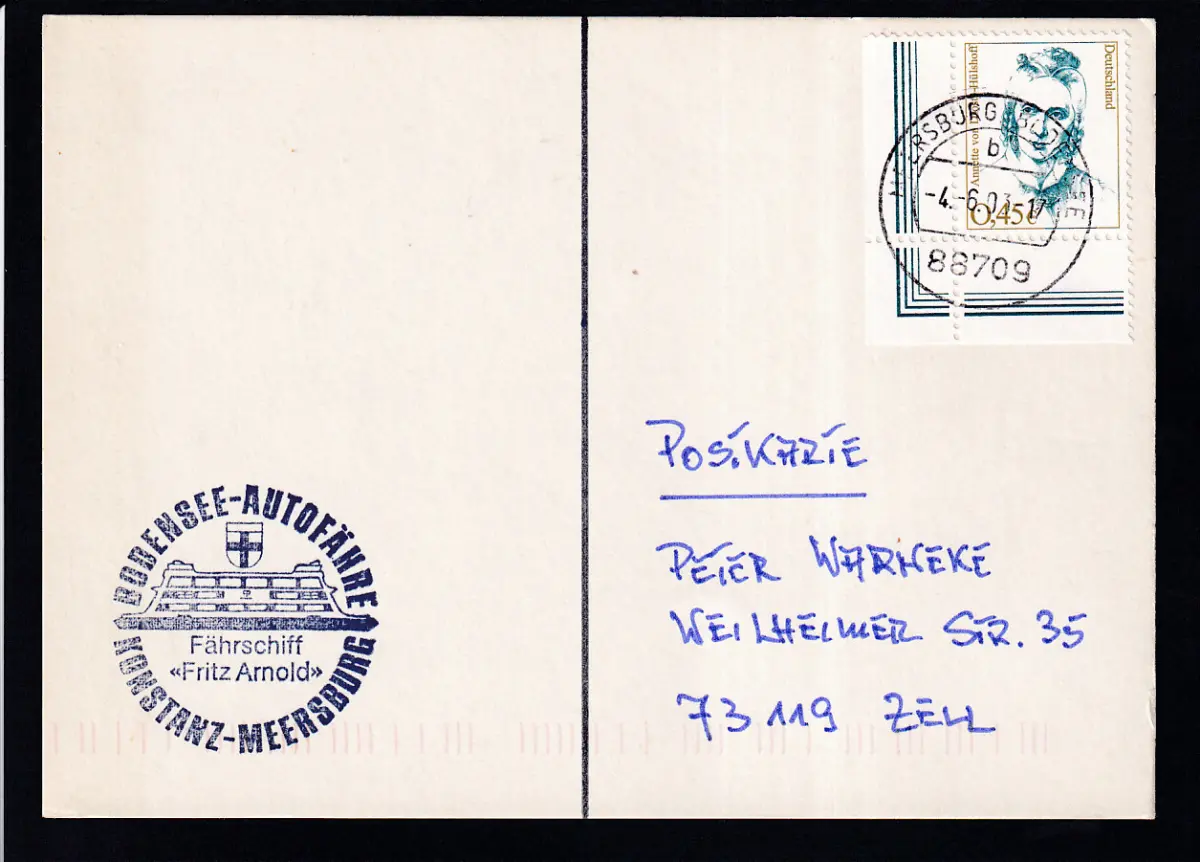 Deutschland
Annette von Droste-Hülshoff
0,45€
MEERSBURG, BODENSEE
b
-4.-6.03.-17
88709
POSTKARTE
PETER WARNEKE
WEILHEIMER STR. 35
73119 ZELL
BODENSEE-AUTOFÄHRE
Fährschiff
«Fritz Arnold»
KONSTANZ-MEERSBURG